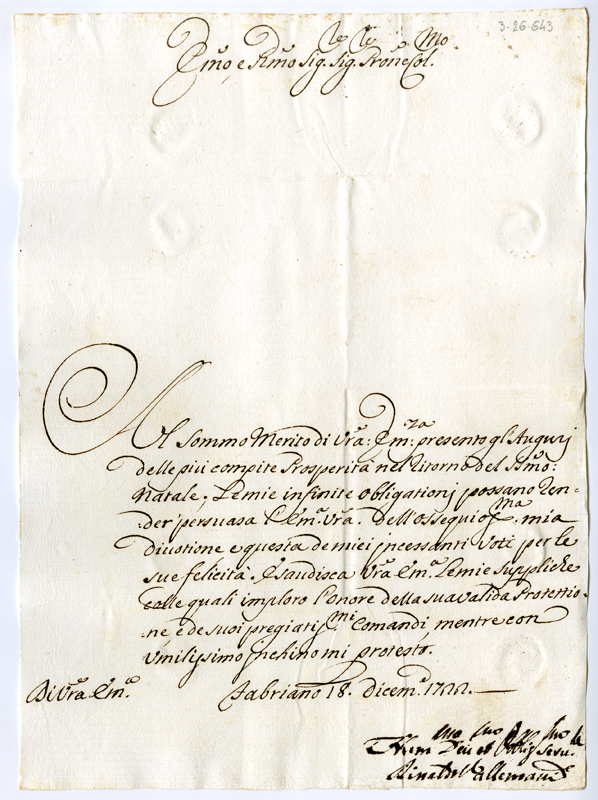 3-26-643
Emo, e Rmo Sig.re Sig.re Prone Col.mo
Al Sommo Merito di Vra: Em.za: presento gl'Augurj
delle più compite Prosperità nel ritorno del Ssmo:
Natale; Le mie infinite obligationj possano ren-
der persuasa l'Em.a Vra. dell'ossequios.ma mia
divotione e questa de miei incessanti Voti per le
sue felicità. Esaudisca Vra Em.a Le mie suppliche
colle quali imploro l'onore della sua valida Protettio-
ne e de suoi pregiatis.mi Comandi, mentre con
Umilissimo Inchino mi protesto.
Di Vra Em.a Fabriano 18. dicem.e 1722.
Hum.mo Deu.mo et Oblig.mo Seru.le
Rinaldo